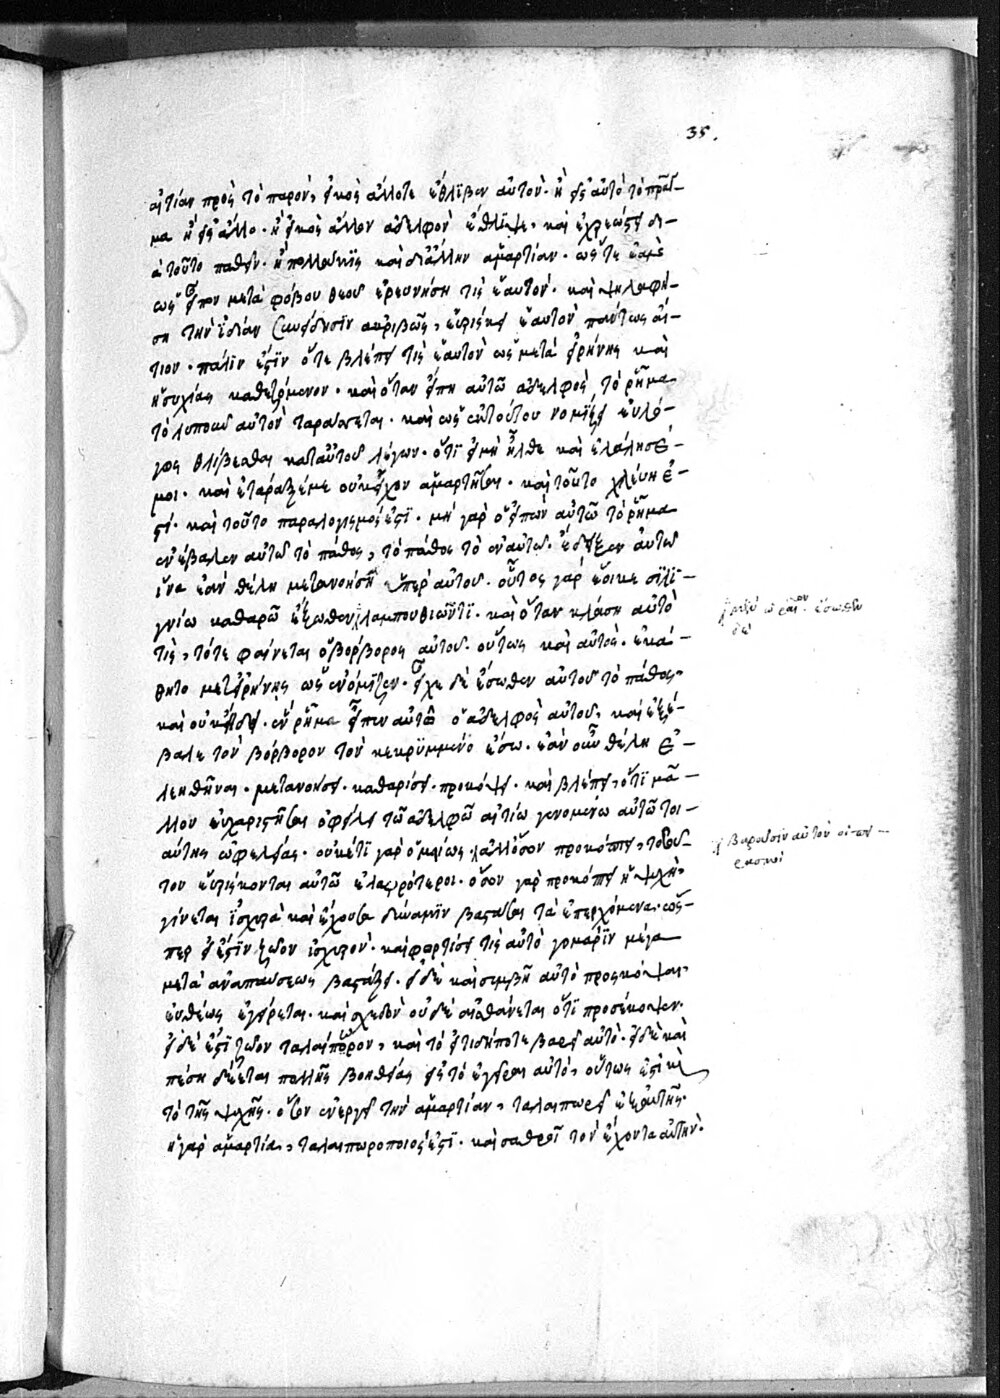 35.
αἰτίαν πρὸς τὸ παρὸν, εἰκὸς ἄλλοτε ἔθλιβεν αὐτὸν· ἢ εἰς αὐτὸ τὸ πρᾶγ-
μα ἢ εἰς ἄλλο· ἢ εἰκὸς ἄλλον ἀδελφὸν ἔθλιψε, καὶ ἐχρεώστει δι-
ὰ τοῦτο παθεῖν· ἢ πολλάκις καὶ δι' ἄλλην ἁμαρτίαν· ὥστε ἐὰν
ὡς εἶπον μετὰ φόβου θεοῦ ἐρευνήση τις ἑαυτὸν· καὶ ψηλαφή-
ση τὴν ἰδίαν συνείδησιν ἀκριβῶς, εὑρίσκει ἑαυτὸν πάντως αἴ-
τιον· πάλιν ἐστὶν ὅτε βλέπει τις ἑαυτὸν ὡς μετὰ εἰρήνης καὶ
ἡσυχίας καθεζόμενον· καὶ ὅταν εἴπη αὐτῶ ἀδελφὸς τὸ ῥῆμα
τὸ λυποῦν αὐτὸν ταράσσεται· καὶ ὡς ἐκ τούτου νομίζει εὐλό-
γως θλίβεσθαι κατ' αὐτοῦ λέγων· ὅτι εἰ μὴ ἦλθε καὶ ἐλάλησέ
μοι· καὶ ἐτάραξέ με οὐκ εἶχον ἁμαρτῆσαι· καὶ τοῦτο χλεύη ἐ-
στί· καὶ τοῦτο παραλογισμός ἐστι· μὴ γὰρ ὁ εἰπὼν αὐτῶ τὸ ῥῆμα
ἐνέβαλεν αὐτῶ τὸ πάθος, τὸ πάθος τὸ ἐν αὐτῶ· ἔδειξεν αὐτῶ
ἵνα ἐὰν θέλη μετανοήση ὑπὲρ αὐτοῦ· οὗτος γὰρ ἔοικε σιλι-
γνίω καθαρῶ ἔξωθεν λαμπυθιῶντι· καὶ ὅταν κλάση αὐτὸ
τὶς, τότε φαίνεται ὁ βόρβορος αὐτοῦ· οὕτως καὶ αὐτὸς· ἐκά-
θητο μετ' εἰρήνης ὡς ἐνόμιζεν· εἶχε δὲ ἔσωθεν αὐτοῦ τὸ πάθος,
καὶ οὐκ ἤδει· ἓν ῥῆμα εἶπεν αὐτῶ ὁ ἀδελφὸς αὐτοῦ, καὶ ἐξέ-
βαλε τὸν βόρβορον τὸν κεκρυμμένον ἔσω· ἐὰν οὖν θέλη ἐ-
λεηθῆναι· μετανοήσει· καθαρίσει· προκόψει· καὶ βλέπει, ὅτι μᾶ-
λλον εὐχαριστῆσαι ὀφείλει τῶ ἀδελφῶ αἰτίω γενομένω αὐτῶ τοι-
αύτης ὠφελείας· οὐκέτι γὰρ ὁμοίως· ἀλλ' ὅσον προκόπτει, τοσοῦ-
τον εὑρίσκονται αὐτῶ ἐλαφρότεροι· ὅσον γὰρ προκόπτει ἡ ψυχὴ,
γίνεται ἰσχυρὰ καὶ ἔχουσα δύναμιν βαστάσαι τὰ ἐπερχόμενα· ὥσ-
περ εἰ ἐστὶν ζῶον ἰσχυρὸν· καὶ φορτίσει τις αὐτὸ γομάριν μέγα
μετὰ ἀναπαύσεως βαστάζει· εἰ δὲ καὶ συμβῆ αὐτὸ προσκόψαι,
εὐθέως ἐγείρεται· καὶ σχεδὸν οὐδὲ αἰσθάνεται ὅτι προσέκοψεν·
εἰ δέ ἐστι ζῶον ταλαίπωρον, καὶ τὸ ὁτιδήποτε βαρεῖ αὐτὸ· εἰ δὲ καὶ
πέση δέεται πολλῆς βοηθείας εἰς τὸ ἐγεῖραι αὐτὸ, οὕτως ἐστὶ καὶ
τὸ τῆς ψυχῆς· ὅσον ἐνεργεῖ τὴν ἁμαρτίαν, ταλαιπωρεῖ ἐξ αὐτῆς·
ἡ γὰρ ἁμαρτία, ταλαιπωροποιός ἐστι· καὶ σαθροῖ τὸν ἔχοντα αὐτὴν·